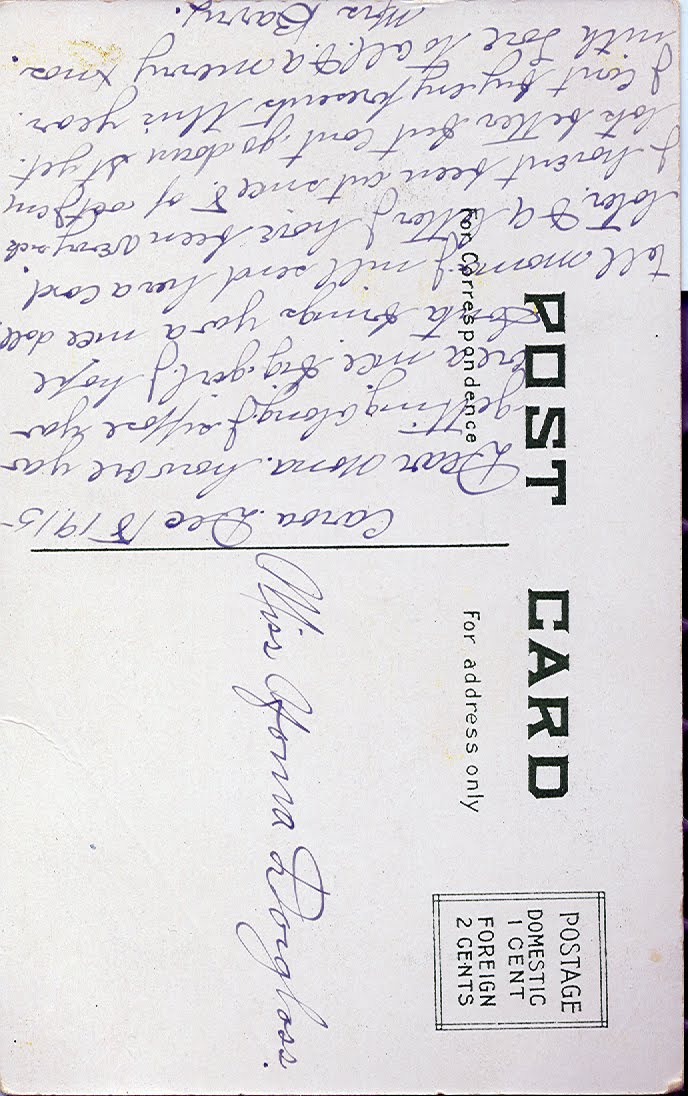 POST CARD
For Correspondence
For address only
POSTAGE
DOMESTIC
1 CENT
FOREIGN
2 CENTS
Dec 18 1915
Dear Norna. how are you
getting along I suppose you
are a nice big girl. I hope
Santa brings you a nice doll.
tell mama I will send her a card.
later & a letter I have been very sick
I havent been out since 8 of oct I am
lots better but cant go down st yet.
I cant buy eny presents this year.
with love to all & a merry xmas
Mrs Barry.
Miss Norna Dougloss.